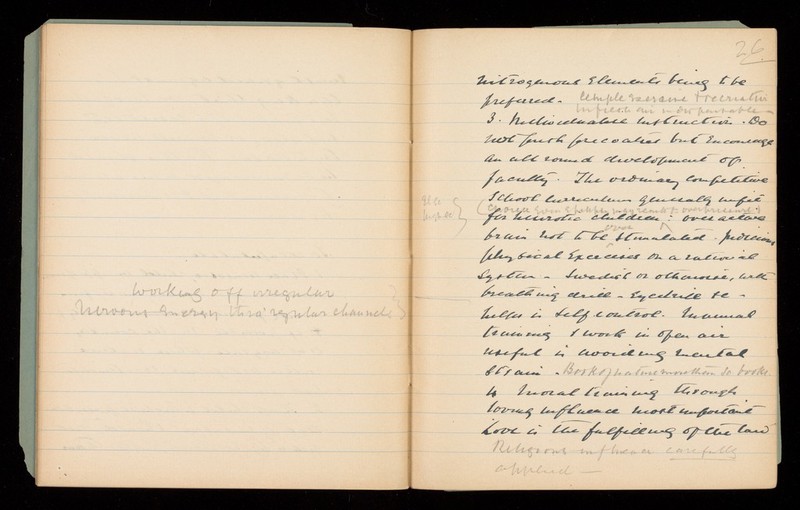 Working off irregular
nervous energy thro' regular channels
26
nitrogenous elements being to be
preferred. Ample exercise & recreation
in fresh air indispensable
3. Individualise instruction. Do
not push precocities but encourage
an all round development of
faculty. The ordinary competitive
School curriculum generally unfit
for neurotic children: over active
brain not to be over stimulated. Judicious
physical Exercises on a rational
system - Swedish or otherwise, with
breathing drill - Eyedrill &c -
helps in self control. Manual
training & work in open air
useful in avoiding mental
strain. Book of nature more than in books
4 Moral training through
loving influence most important
Love is the fulfilling of the law
Religious influence carefully
applied —